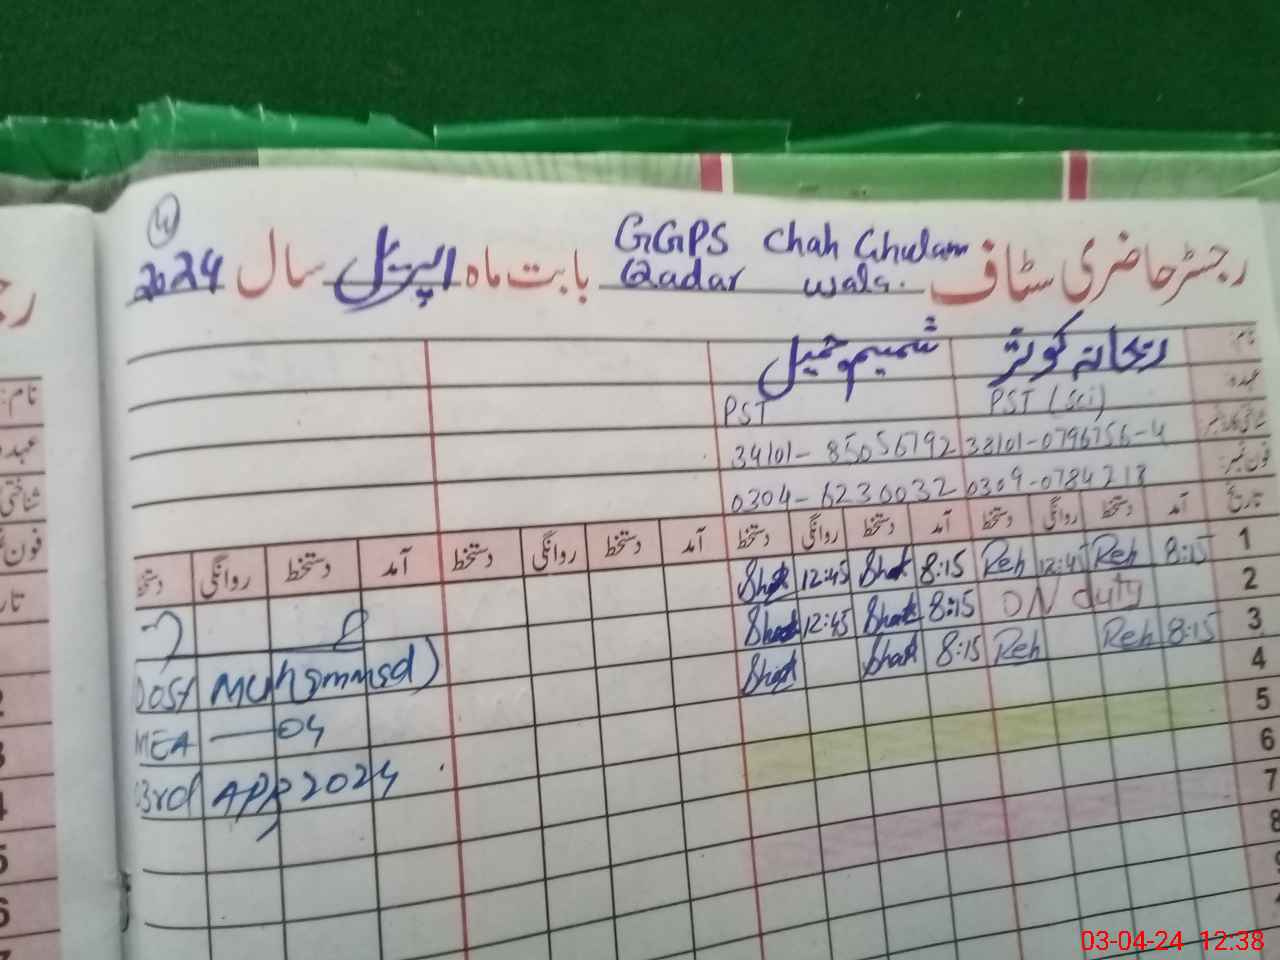 رجسٹر حاضری سٹاف GGPS Chah Ghulam Qadar wala. بابت ماہ اپریل سال 2024
نام: ریحانہ کوثر شمیم جمیل
عہدہ: PST (Sci) PST
38101-0796756-4 34101-85056792
فون نمبر: 0309-0784218 0304-6230032
تاریخ آمد دستخط روانگی دستخط آمد دستخط روانگی دستخط آمد دستخط روانگی دستخط آمد دستخط روانگی دستخط
1 8:15 Reh 12:45 Reh 8:15 Shat 12:45 Shat
2 ON duty 8:15 Shat 12:45 Shat
3 8:15 Reh Reh 8:15 Shat Shat
4
5
6
7
8
Dost Muhammad)
MEA — 04
03rd APR, 2024
نام:
عہدہ
شناختی
فون
تار
03-04-24 12:38